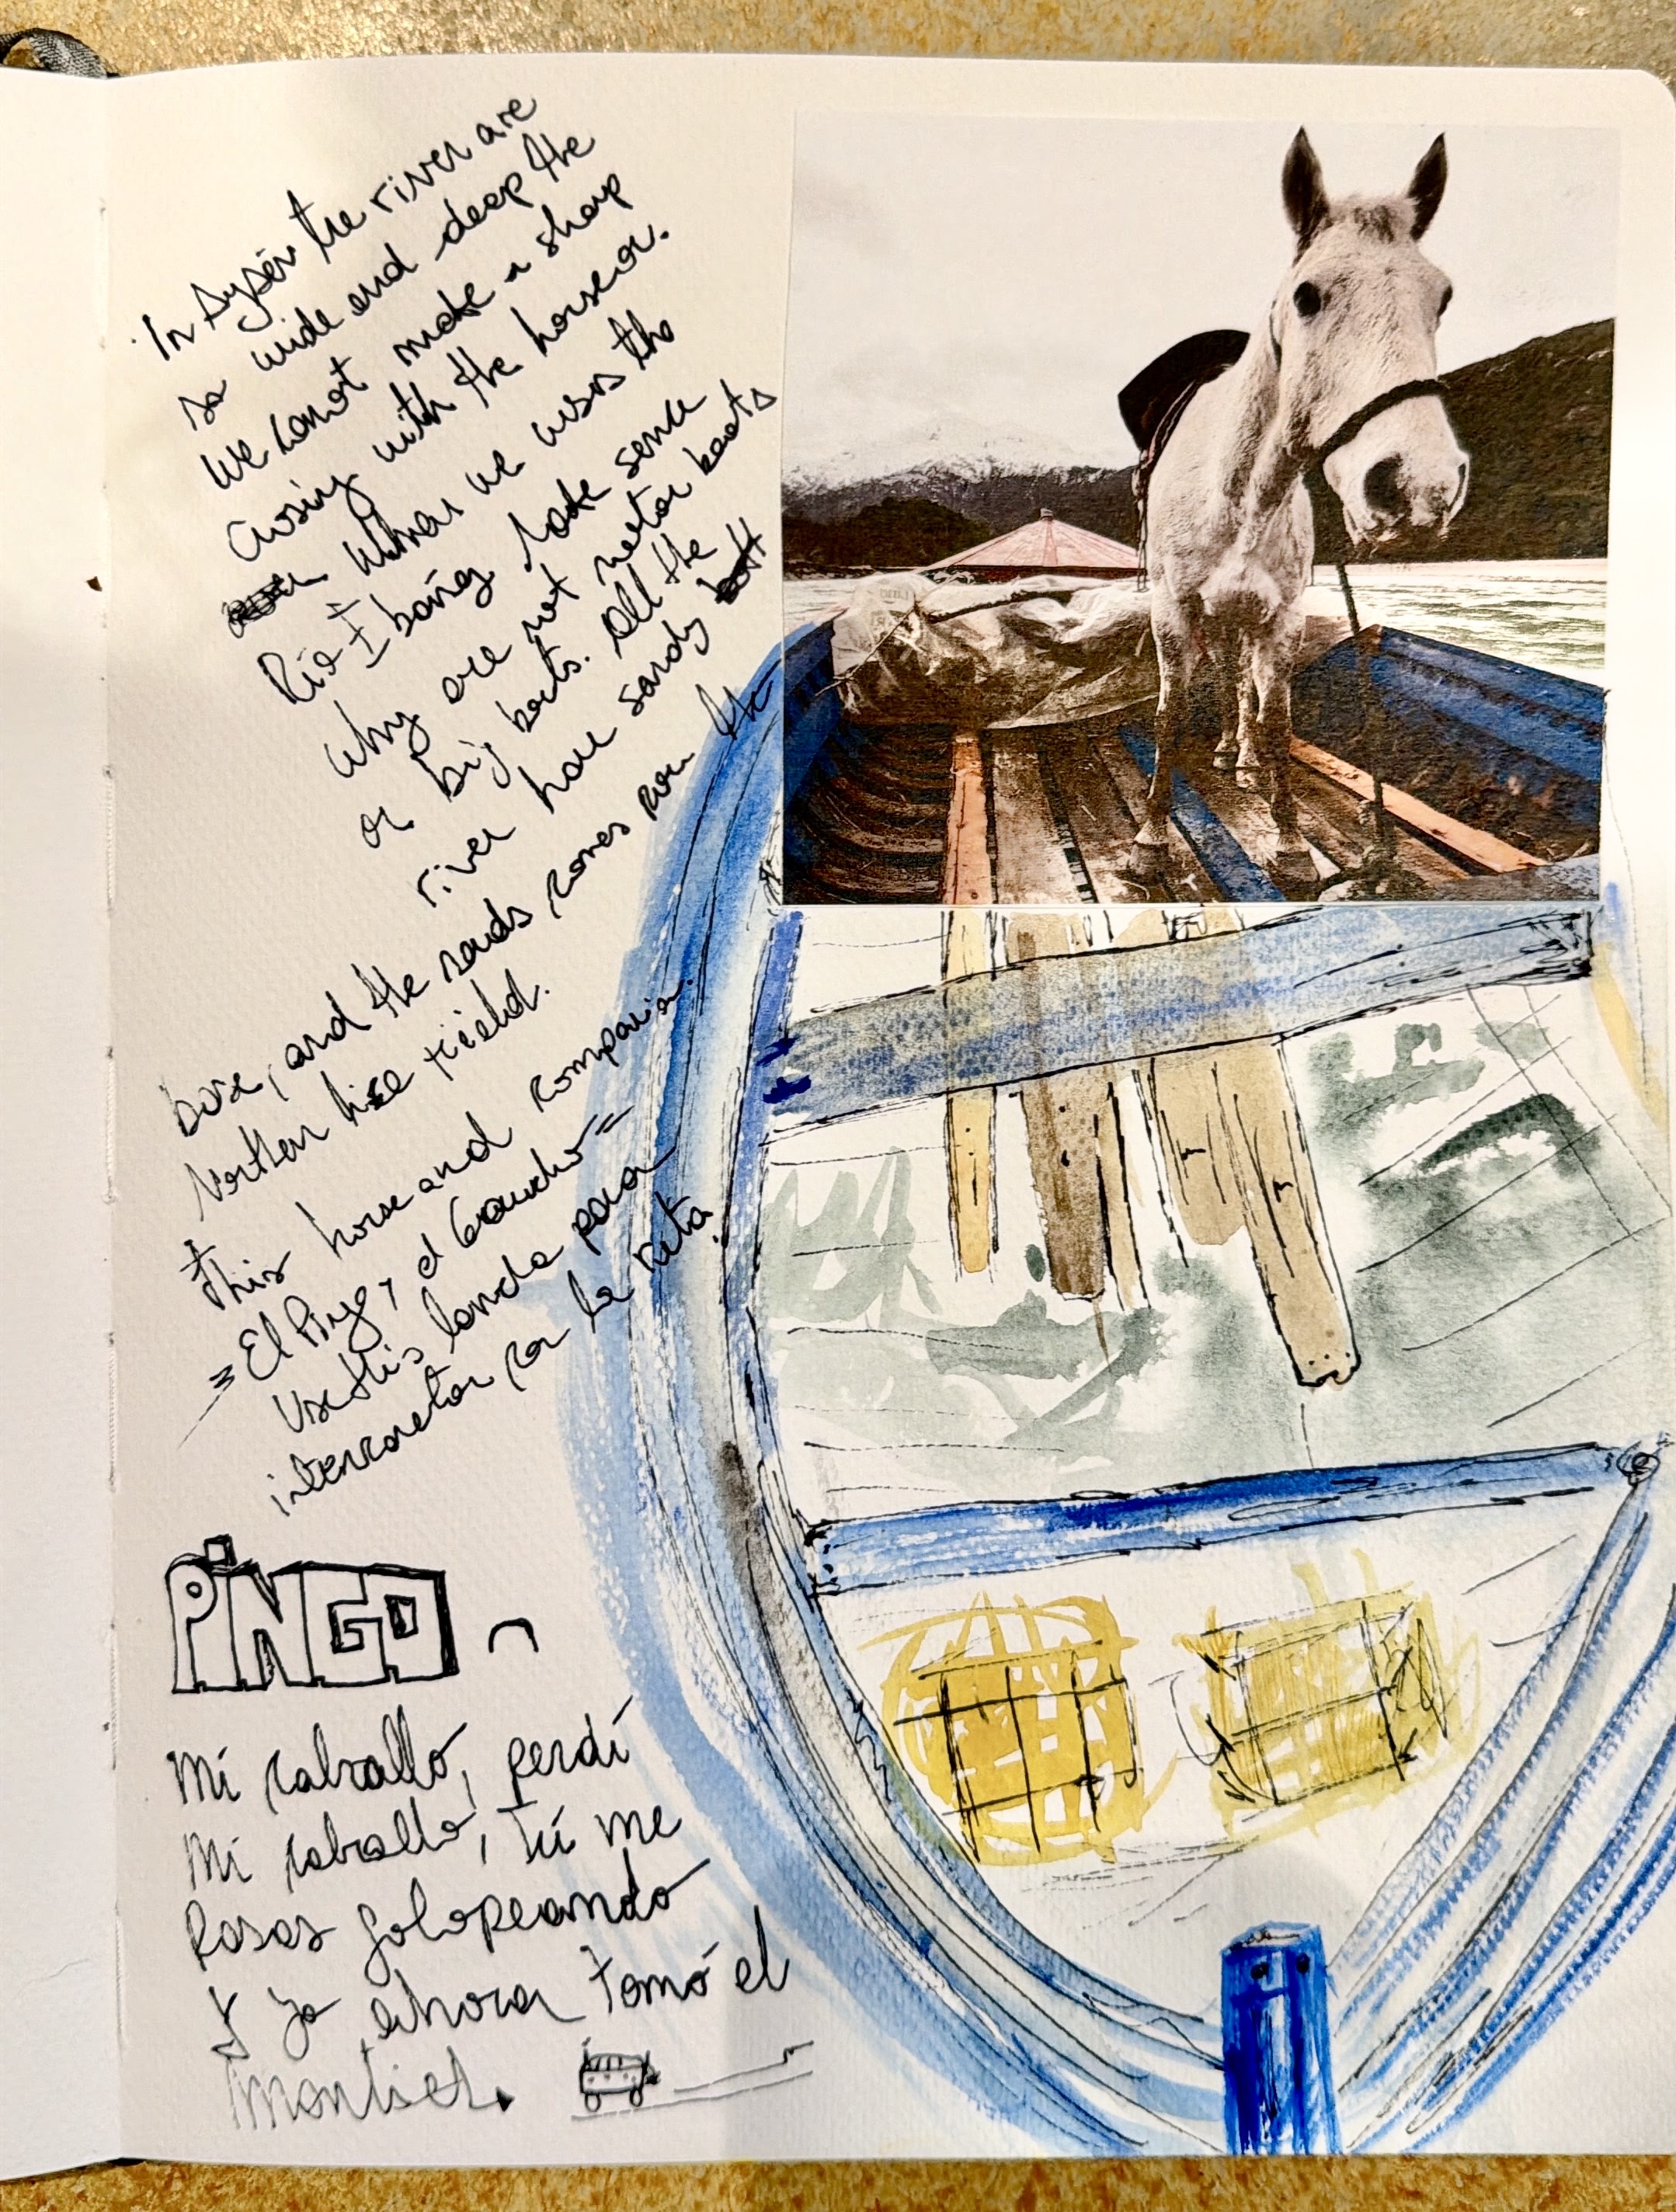 In Aysén the river are
so wide and deep the
We canot make a sharp
crosing with the horse or.
When we cross the
Río I boing made sence
Why are not motor boats
or big boats. All the
river have sandy
base, and the sands comes from the
Northen hice field.
this horse and compania.
= El Pingo, y el Gaucho =
Use this lancha para
interconectar con la ruta.
PiNGO
Mi caballo, perdí
Mi caballo, tú me
Pasas galopeando
Y ya ahora tomó el
Montiel.